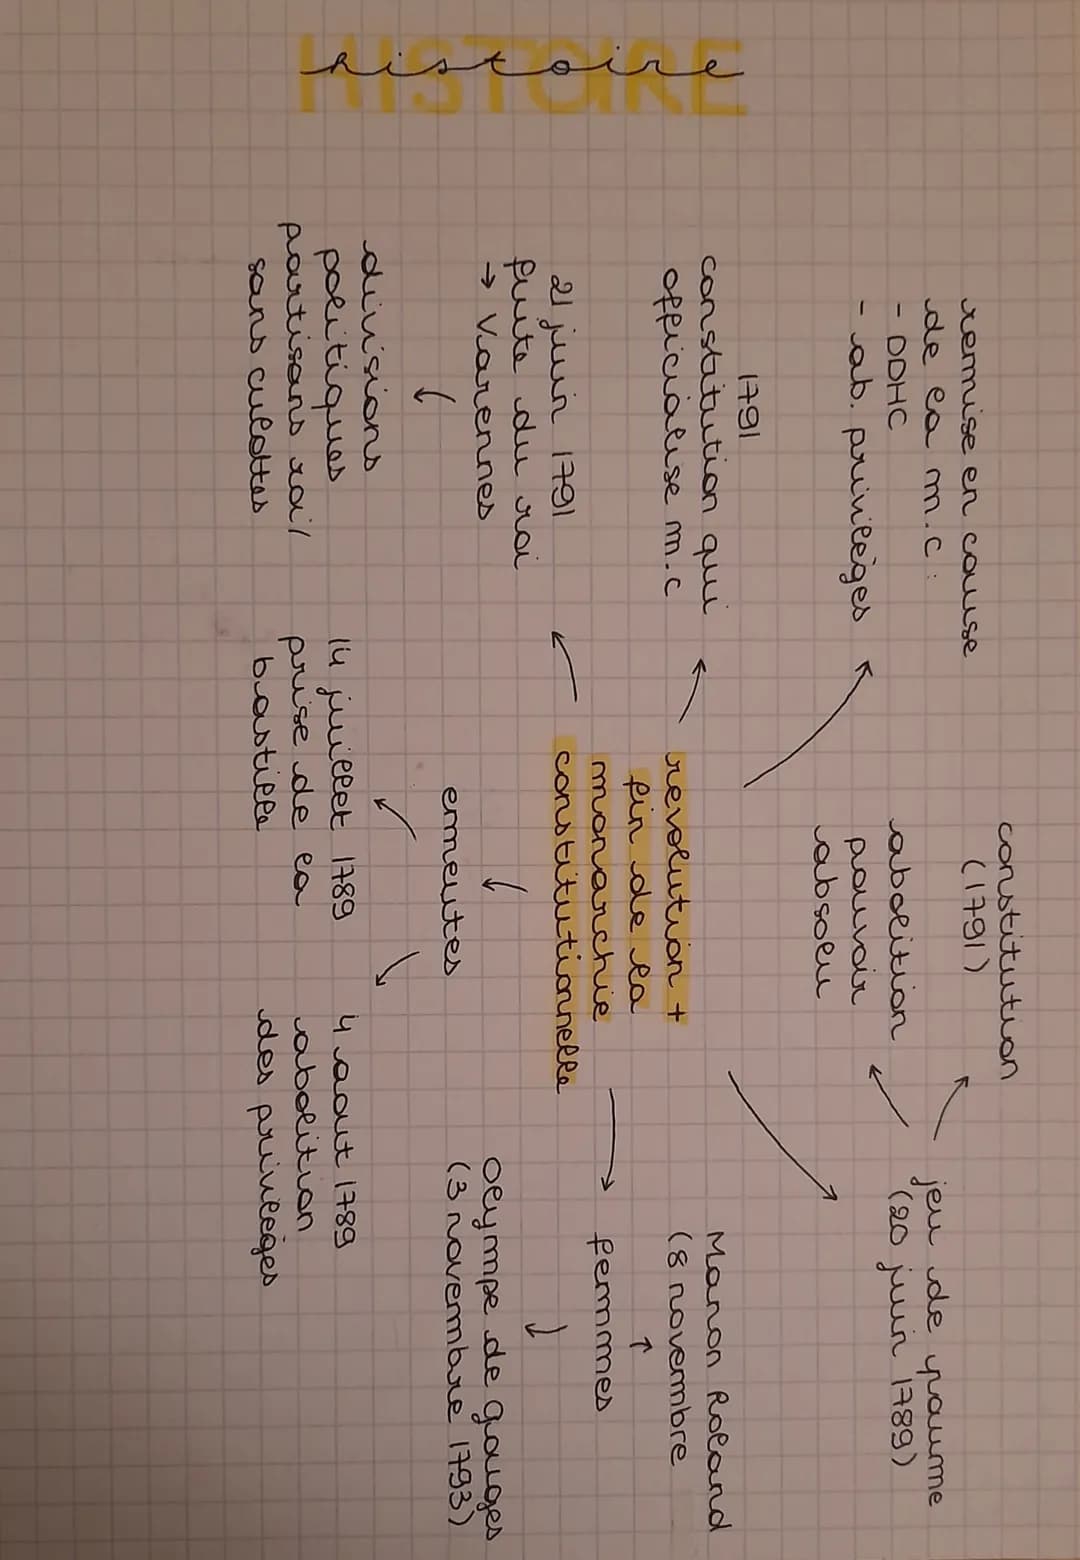 HISTOIRE
histoire
constitution
(1791)
jeu de paume
(20 juin 1789)
abolition
pouvoir
absolu
remise en cause
de la m.c :
- DDHC
- ab. privilèges
1791
constitution qui
officialise m.c
21 juin 1791
fuite du roi
→ Varennes
divisions
politiques
partisans roi/
sans culottes
revolution +
fin de la
monarchie
constitutionnelle
Manon Roland
(8 novembre
femmes
Olympe de Gouges
(3 novembre 1793)
emeutes
14 juillet 1789
prise de la
bastille
4 aout 1789
abolition
des privilèges